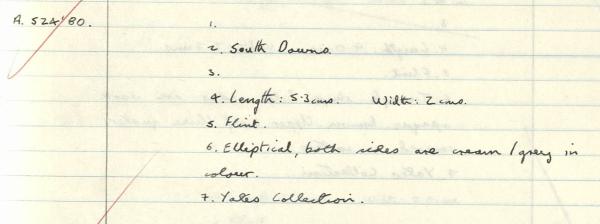 A. 524'80.
1.
2. South Downs.
3.
4. Length: 5.3 cms. Width: 2 cms.
5. Flint.
6. Elliptical, both sides are cream/grey in
colour.
7. Yates Collection.